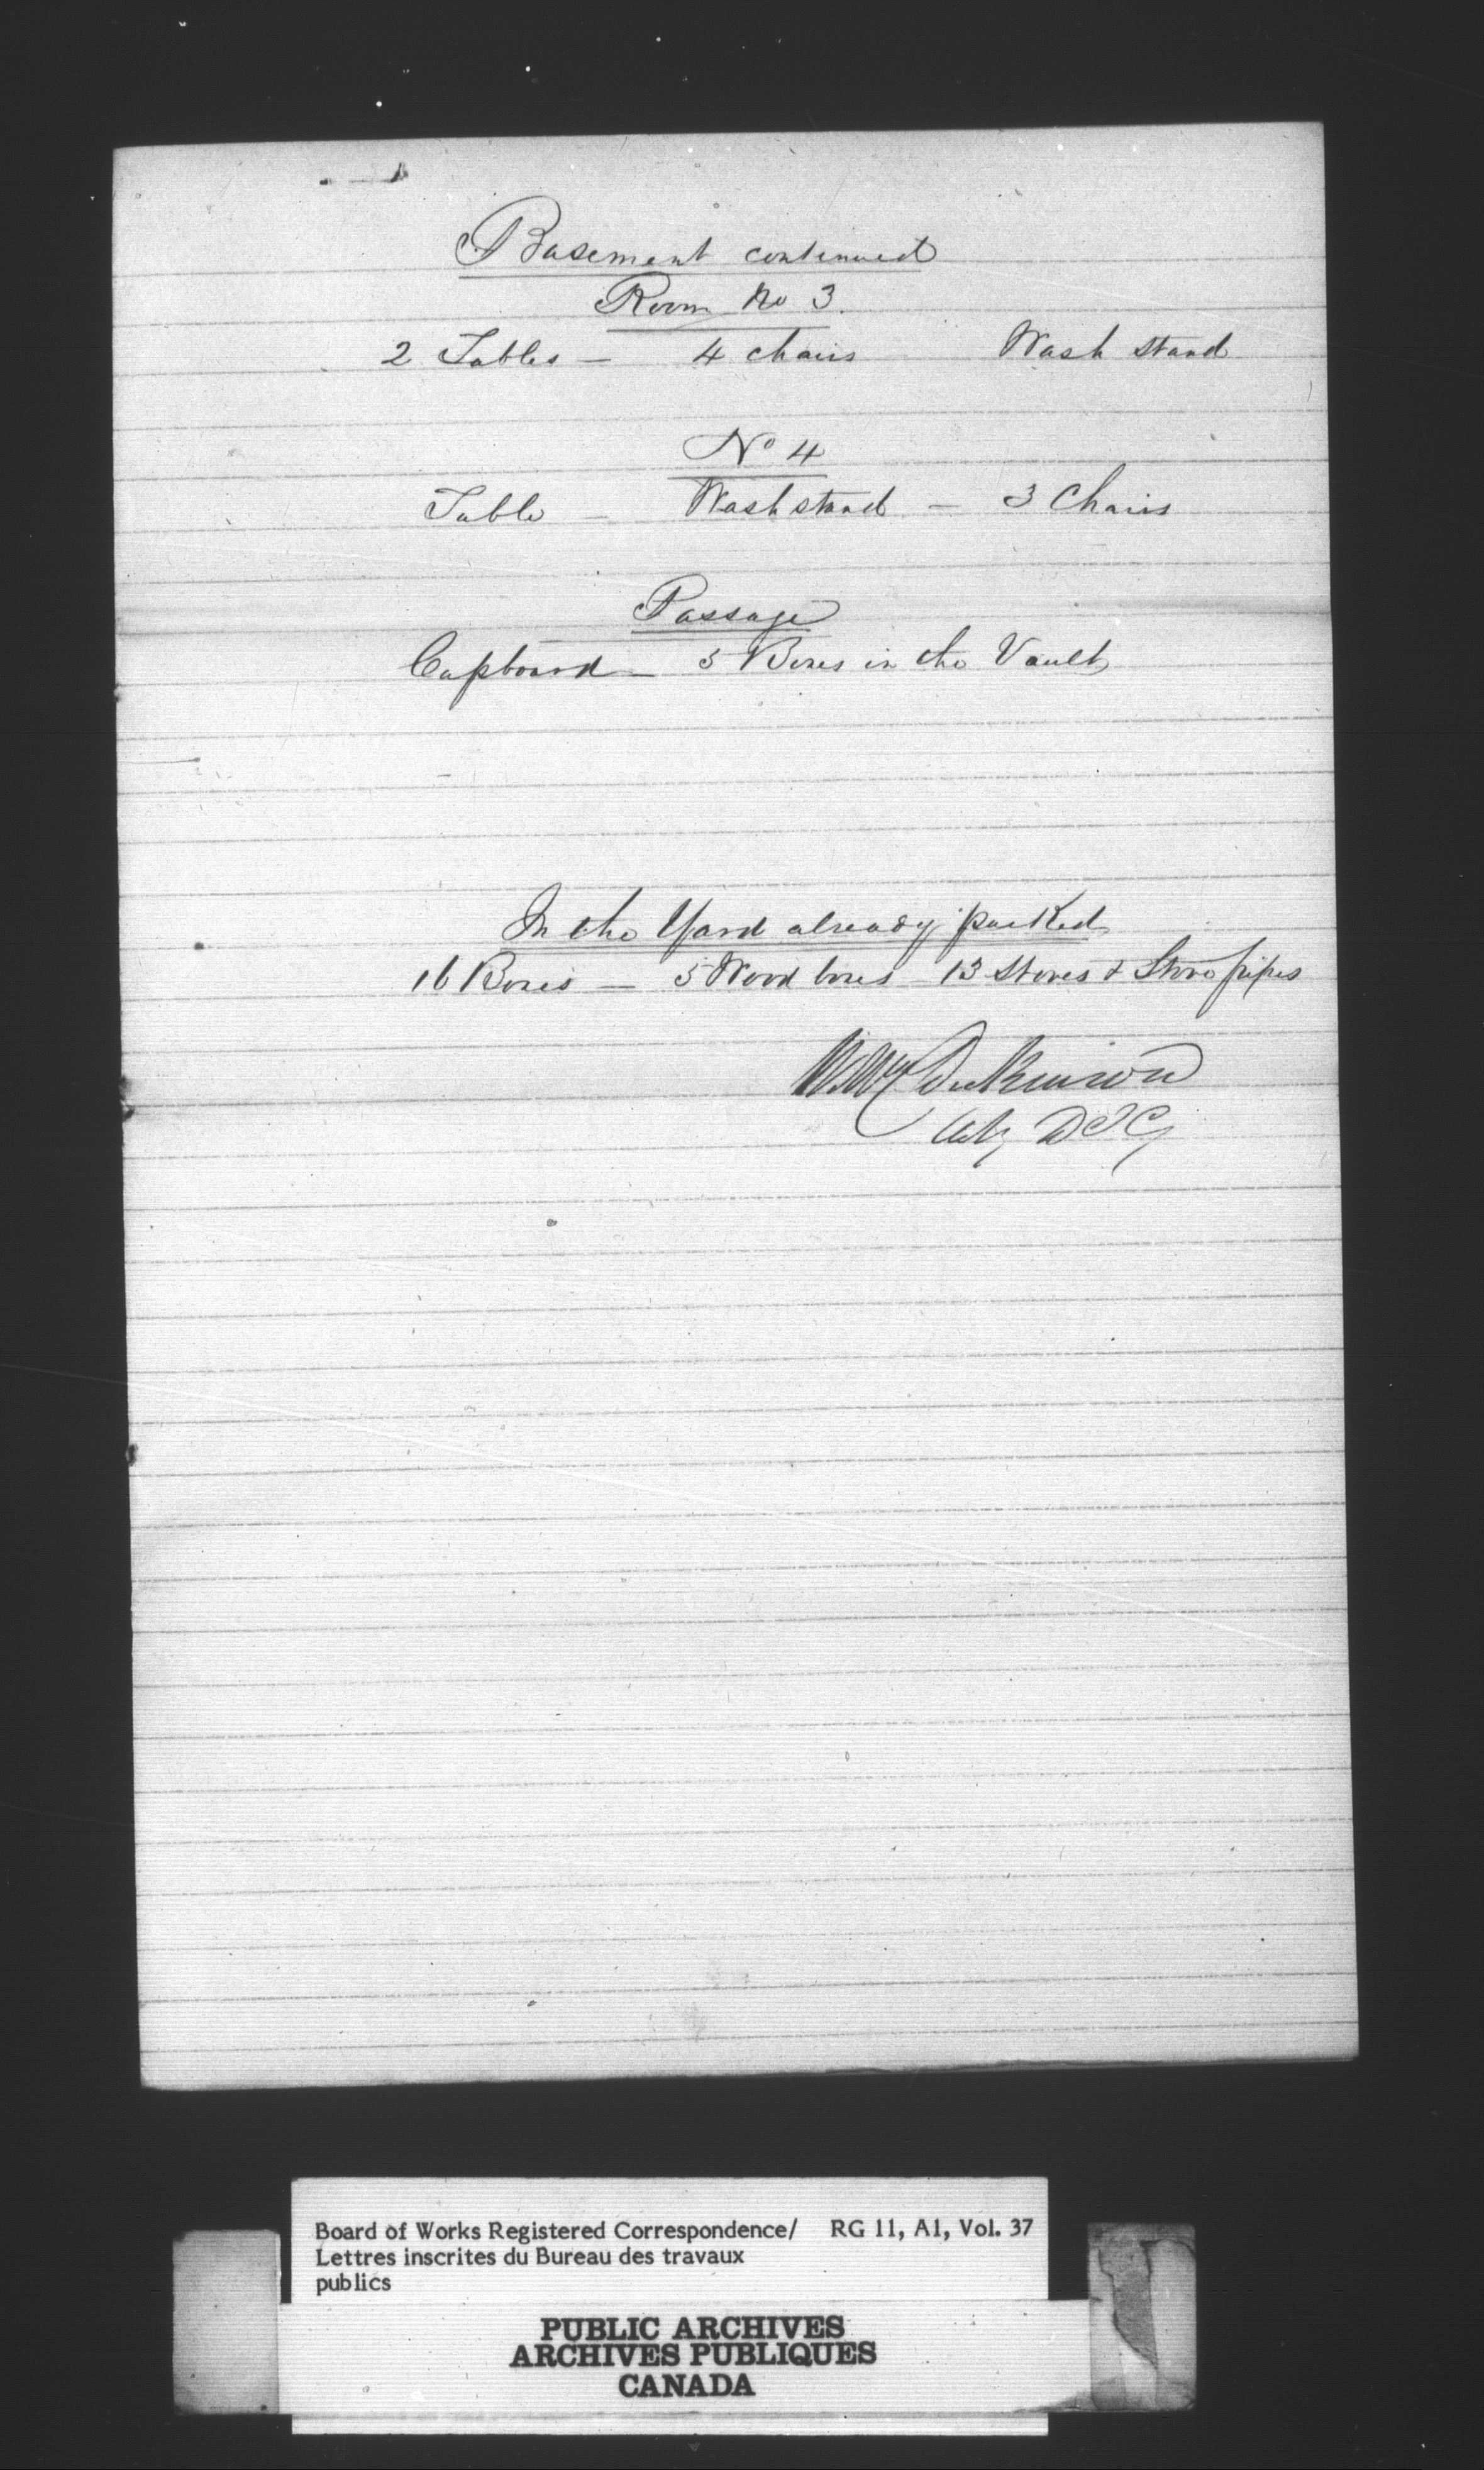 Basement continued
Room No 3.
2 Tables – 4 chairs Wash stand
No 4
Table – Wash stand – 3 Chairs
Passage
Cupboard – 5 Boxes in the Vault
In the Yard already packed
16 Boxes – 5 Wood boxes – 13 Stoves & Stove pipes
Dickinson
Actg D I G
Board of Works Registered Correspondence/ RG 11, A1, Vol. 37
Lettres inscrites du Bureau des travaux
publics
PUBLIC ARCHIVES
ARCHIVES PUBLIQUES
CANADA